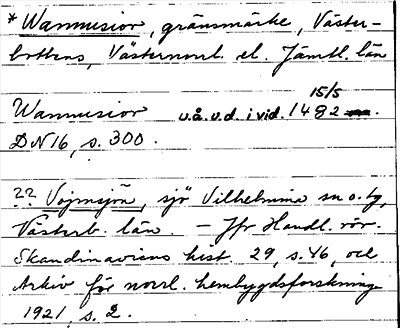 * Wanmusior, gränsmärke, Väster-
bottens, Västernorrl. el. Jämtl. län
15/5
Wanmusior u.å.u.d. i vid. 1482
DN16, s. 300.
?? Vojmsjön, sjö Vilhelmina sn o. tg,
Västerb. län. — Jfr Handl. rör.
Skandinaviens hist. 29, s. 46, och
Arkiv för norrl. hembygdsforskning
1921, s. 2.